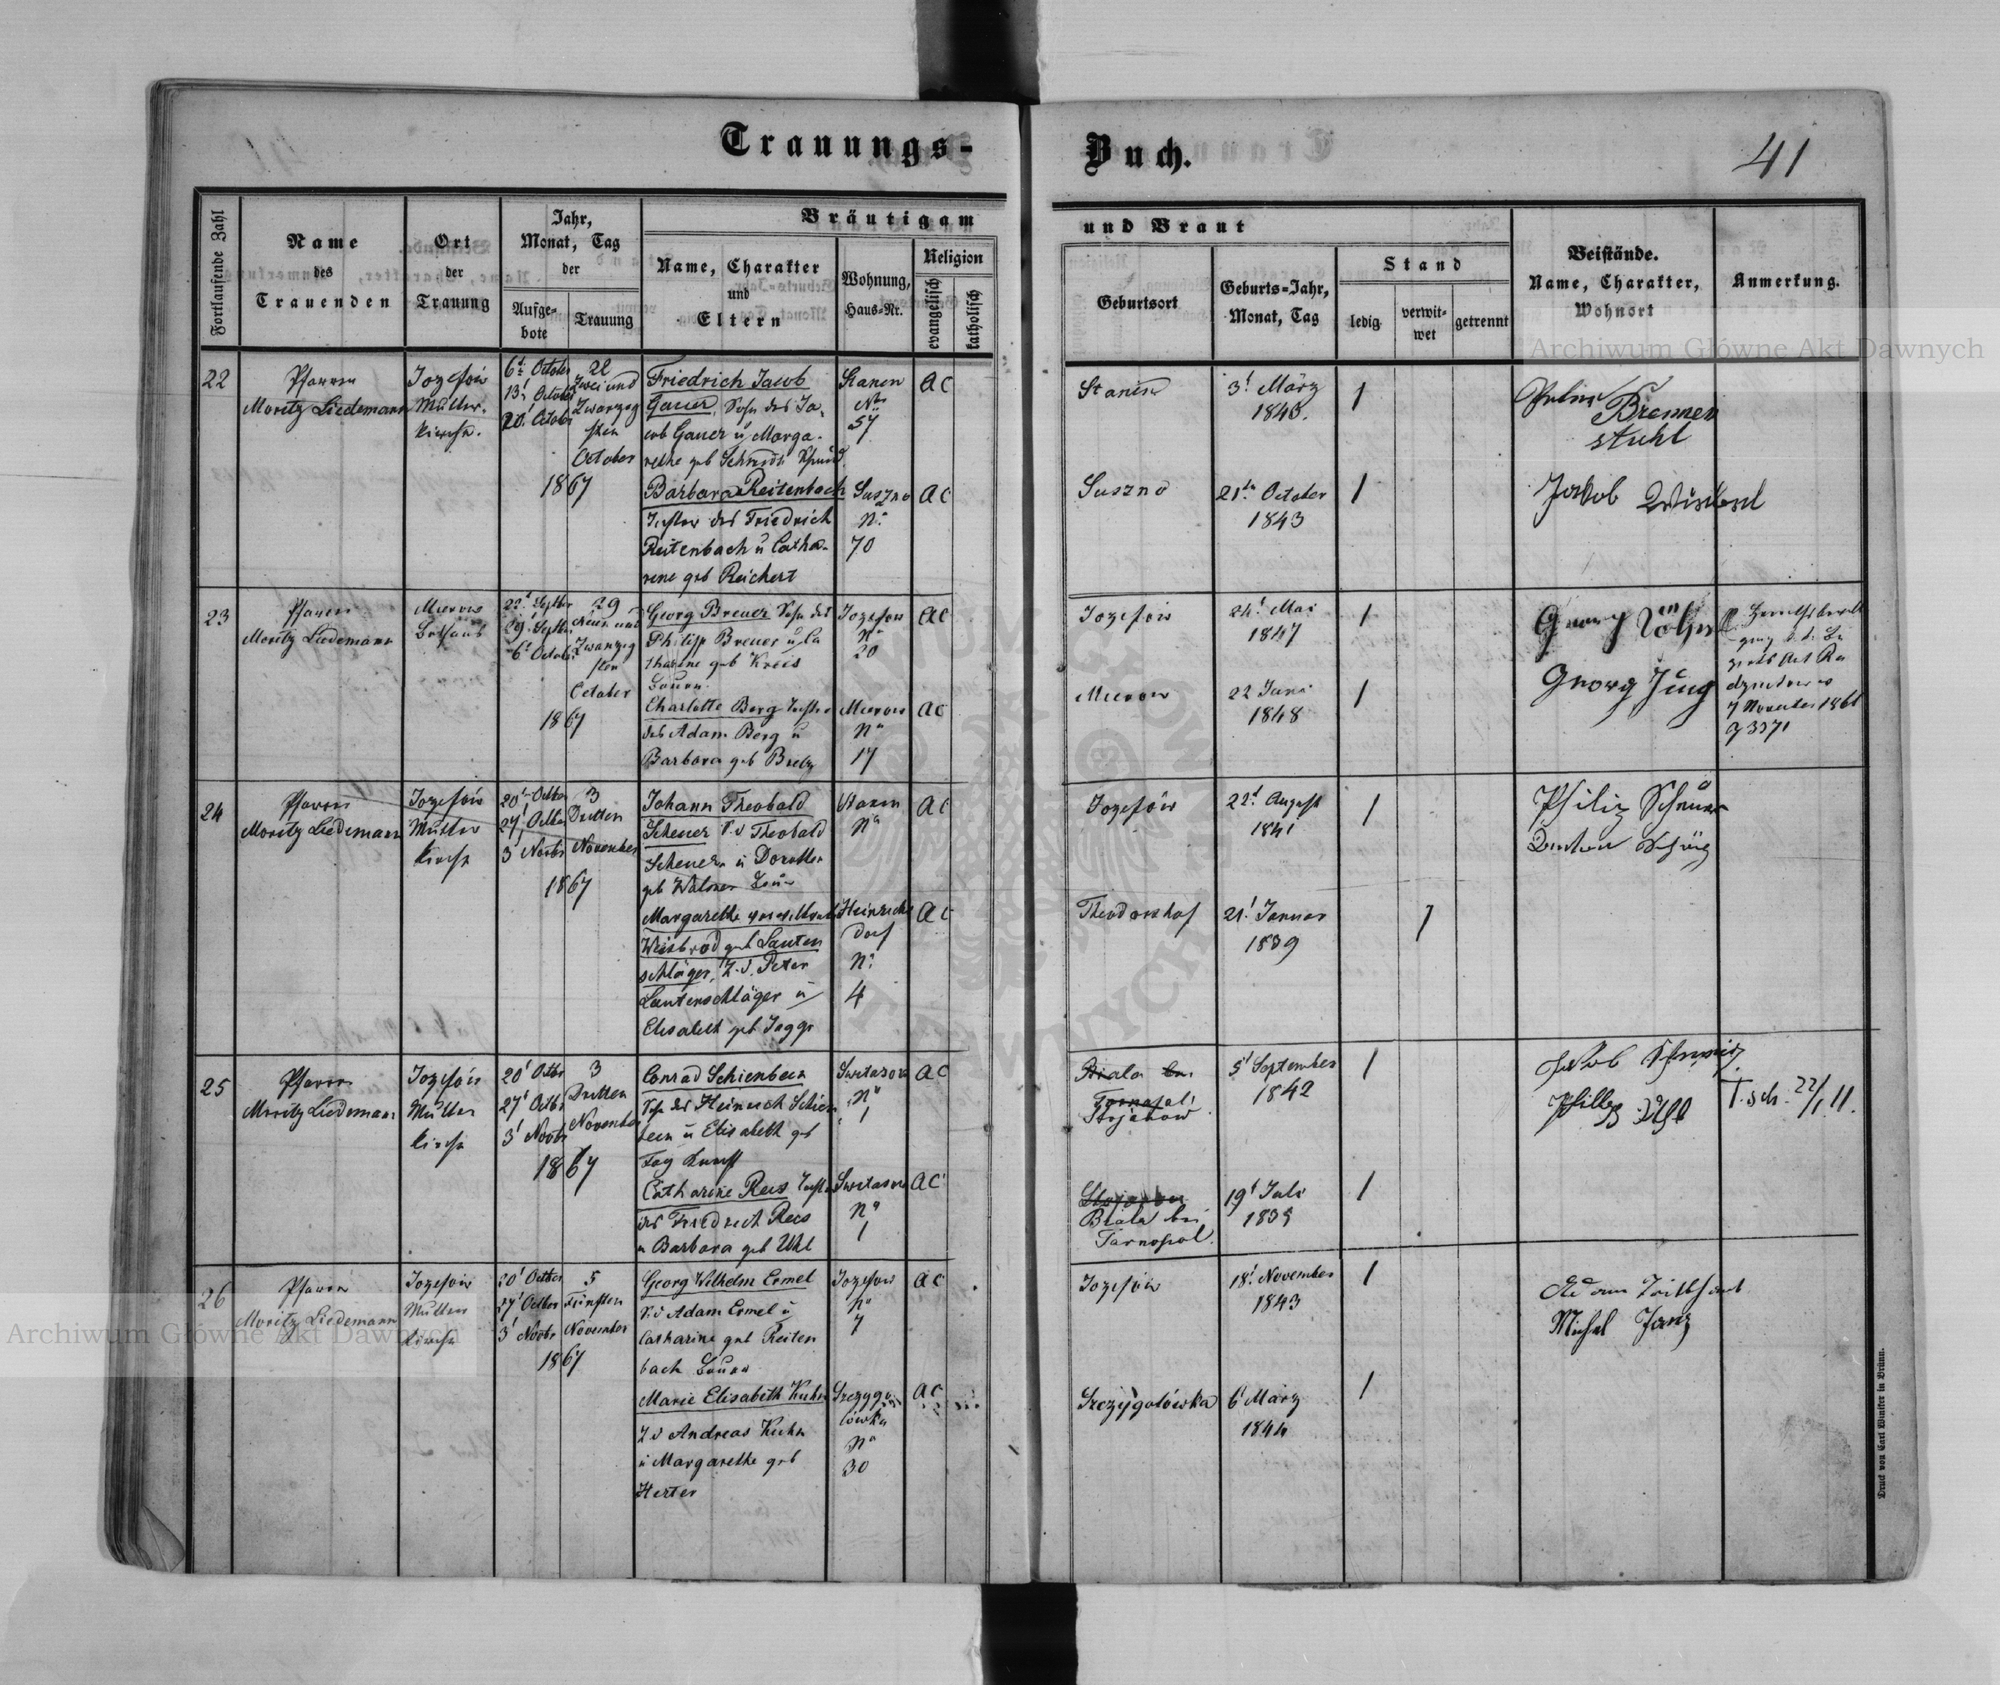 Trauungs-
Buch.
41
Fortlaufende Zahl
Name
des
Trauenden
Ort
der
Trauung
Jahr,
Monat, Tag
der
Aufge-
bote
Trauung
Bräutigam
und Braut
Name, Charakter
und
Eltern
Wohnung,
Haus-Nr.
Religion
evangelisch
katholisch
Geburtsort
Geburts-Jahr,
Monat, Tag
Stand
ledig
verwit-
wet
getrennt
Beistände.
Name, Charakter,
Wohnort
Anmerkung.
22
Pfarrer
Moritz Liedemann
Jozefów
Mutter-
kirche.
6t October
13t October
20t October
22
Zwei und
Zwanzig
sten
October
1867
Friedrich Jacob
Gauer, Sohn des Ja-
cob Gauer u Marga-
rethe geb Schmidt
Stanin
No
57
AC
Stanin
3t März
1843.
1
Brennen
stuhl
Barbara Reitenbach
Tochter des Friedrich
Reitenbach u Catha-
rine geb Reichert
Suszno
No
70
AC
Suszno
21tn October
1843
1
Jakob
23
Pfarrer
Moritz Liedemann
Mierow
Bethaus
22t Septbr
29t Septbr
6t October
29
Neun und
Zwanzig
sten
October
1867
Georg Breuer Sohn des
Philipp Breuer u Ca
tharine geb Krees
Bauer.
Jozefow
No
20
AC
Jozefów
24t Mai
1847
1
Georg
Charlotte Berg Tochter
des Adam Berg u
Barbara geb
Mierow
No
17
AC
Mierow
22 Juni
1848
1
Georg Jung
7 November 1861
3371
24
Pfarrer
Moritz Liedemann
Jozefów
Mutter
kirche
20t Octber
27t Octber
3t Novbr
3
Dritten
November
1867
Johann Theobald
Scheuer S. v Theobald
Scheuer u Dorothea
geb
Stanin
No
AC
Jozefów
22t August
1841
1
Philip Scheuer
Margarethe
Weisbrod geb Lauten
schläger, T. v. Peter
Lautenschläger u
Elisabeth geb Jaggi
Heinrichs
dorf
No
4
AC
Theodorshof
21t Januar
1839
1
25
Pfarrer
Moritz Liedemann
Jozefów
Mutter
kirche
20t Octbr
27t Octbr
3t Novbr
3
Dritten
November
1867
Conrad Schienbein
Sohn des Heinrich Schien
bein u Elisabeth geb
Switazow
No
1
AC
Biala bei
Tarnopol
Stojanow
5t September
1842
1
Jakob
T. sch. 22/1 11.
Catharine Rees Tochter
des Friedrich Rees
u Barbara geb Uhl
Switazow
No
1
AC
Stojanow
Biala bei
Tarnopol.
19t Juli
1835
1
26
Pfarrer
Moritz Liedemann
Jozefów
Mutter
kirche
20t Octber
27t Octber
3t Novbr
5
Fünften
November
1867
Georg Wilhelm Ermel
S. v Adam Ermel u
Catharine geb Reiten
bach Bauer
Jozefow
No
7
AC
Jozefów
18t November
1843
1
Adam
Michel Janz
Marie Elisabeth Kuhn
T v Andreas Kuhn
u Margarethe geb
Herter
Szczygo
lówka
No
30
AC
Szczygolówka
6t März
1844
1
Druck von Carl Winiker in Brünn.
Archiwum Główne Akt Dawnych
Archiwum Główne Akt Dawnych